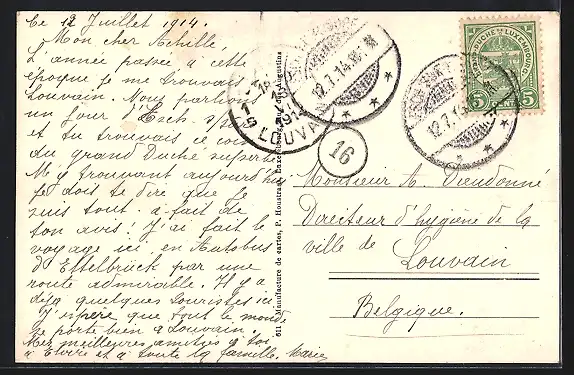 Ce 12 Juillet 1914.
Mon cher Achille,
L'année passée à cette
époque je me trouvais à
Louvain. Nous parlions
un jour d'Esch s/
et tu trouvais ce coin
du grand Duché superbe
M'y trouvant aujourd'hui
je dois te dire que je
suis tout-à-fait de
ton avis! J'ai fait le
voyage ici en Autobus
d'Ettelbrück par une
route admirable. Il y a
déjà quelques touristes ici
J'espère que tout le monde
se porte bien à Louvain.
Mes meilleures amitiés à toi
à Elvire et à toute la famille. Marie
611 Manufacture de cartes, P. Houstraas,
LOUVAIN
1914
12.7.14
16
12.7.14
GRAND DUCHÉ DE LUXEMBOURG
5 5
Monsieur A. Dieudonné
Directeur d'hygiène de la
ville de
Louvain
Belgique.